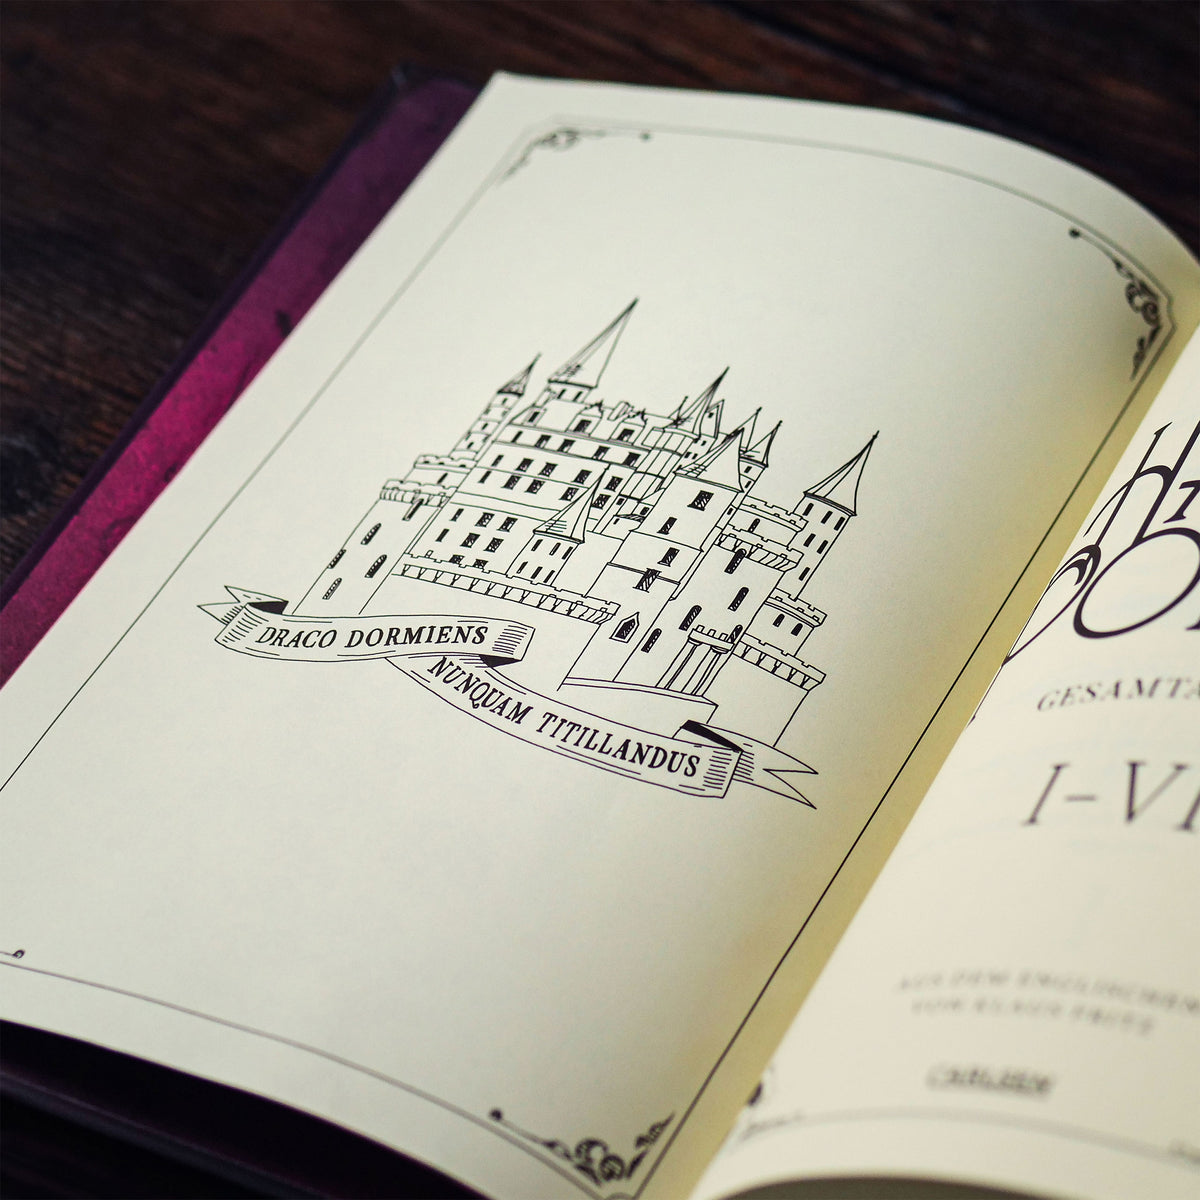 DRACO DORMIENS
NUNQUAM TITILLANDUS
GESAMTA
I–VI
AUS DEM ENGLISCHEN
VON KLAUS FRITZ
CARLSEN